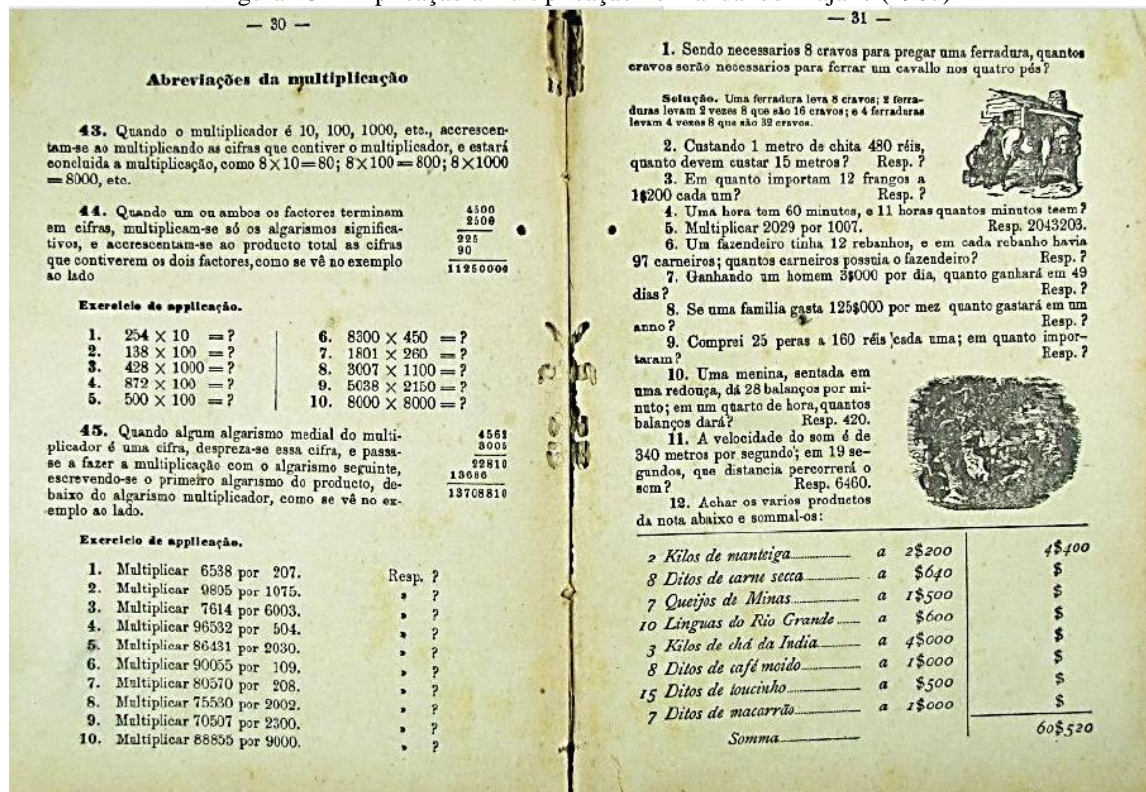 — 30 —
Abreviações da multiplicação
43. Quando o multiplicador é 10, 100, 1000, etc., accrescen-
tam-se ao multiplicando as cifras que contiver o multiplicador, e estará
concluida a multiplicação, como 8×10=80; 8×100=800; 8×1000
=8000, etc.
44. Quando um ou ambos os factores terminam
em cifras, multiplicam-se só os algarismos significa-
tivos, e accrescentam-se ao producto total as cifras
que contiverem os dois factores, como se vê no exemplo
ao lado
4500
2500
225
90
11250000
Exercicio de applicação.
1. 254 × 10 =?
2. 138 × 100 =?
3. 428 × 1000=?
4. 872 × 100 =?
5. 500 × 100 =?
6. 8300 × 450 =?
7. 1801 × 260 =?
8. 3007 × 1100=?
9. 5038 × 2150=?
10. 8000 × 8000=?
45. Quando algum algarismo medial do multi-
plicador é uma cifra, despreza-se essa cifra, e passa-
se a fazer a multiplicação com o algarismo seguinte,
escrevendo-se o primeiro algarismo do producto, de-
baixo do algarismo multiplicador, como se vê no ex-
emplo ao lado.
4562
3005
22810
13686
13708810
Exercicio de applicação.
1. Multiplicar 6538 por 207. Resp. ?
2. Multiplicar 9805 por 1075. » ?
3. Multiplicar 7614 por 6003. » ?
4. Multiplicar 96532 por 504. » ?
5. Multiplicar 86431 por 2030. » ?
6. Multiplicar 90055 por 109. » ?
7. Multiplicar 80570 por 208. » ?
8. Multiplicar 75530 por 2002. » ?
9. Multiplicar 70507 por 2300. » ?
10. Multiplicar 88855 por 9000. » ?
— 31 —
1. Sendo necessarios 8 cravos para pregar uma ferradura, quantos
cravos serão necessarios para ferrar um cavallo nos quatro pés?
Solução. Uma ferradura leva 8 cravos; 2 ferra-
duras levam 2 vezes 8 que são 16 cravos; e 4 ferraduras
levam 4 vezes 8 que são 32 cravos.
2. Custando 1 metro de chita 480 réis,
quanto devem custar 15 metros? Resp. ?
3. Em quanto importam 12 frangos a
1$200 cada um? Resp. ?
4. Uma hora tem 60 minutos, e 11 horas quantos minutos teem?
5. Multiplicar 2029 por 1007. Resp. 2043203.
6. Um fazendeiro tinha 12 rebanhos, e em cada rebanho havia
97 carneiros; quantos carneiros possuia o fazendeiro? Resp. ?
7. Ganhando um homem 3$000 por dia, quanto ganhará em 49
dias? Resp. ?
8. Se uma familia gasta 125$000 por mez quanto gastará em um
anno? Resp. ?
9. Comprei 25 peras a 160 réis cada uma; em quanto impor-
taram? Resp. ?
10. Uma menina, sentada em
uma redouça, dá 28 balanços por mi-
nuto; em um quarto de hora, quantos
balanços dará? Resp. 420.
11. A velocidade do som é de
340 metros por segundo; em 19 se-
gundos, que distancia percorrerá o
som? Resp. 6460.
12. Achar os varios productos
da nota abaixo e sommal-os:
2 Kilos de manteiga a 2$200 4$400
8 Ditos de carne secca a $640 $
7 Queijos de Minas a 1$500 $
10 Linguas do Rio Grande a $600 $
3 Kilos de chá da India a 4$000 $
8 Ditos de café moido a 1$000 $
15 Ditos de toucinho a $500 $
7 Ditos de macarrão a 1$000 $
Somma 60$520